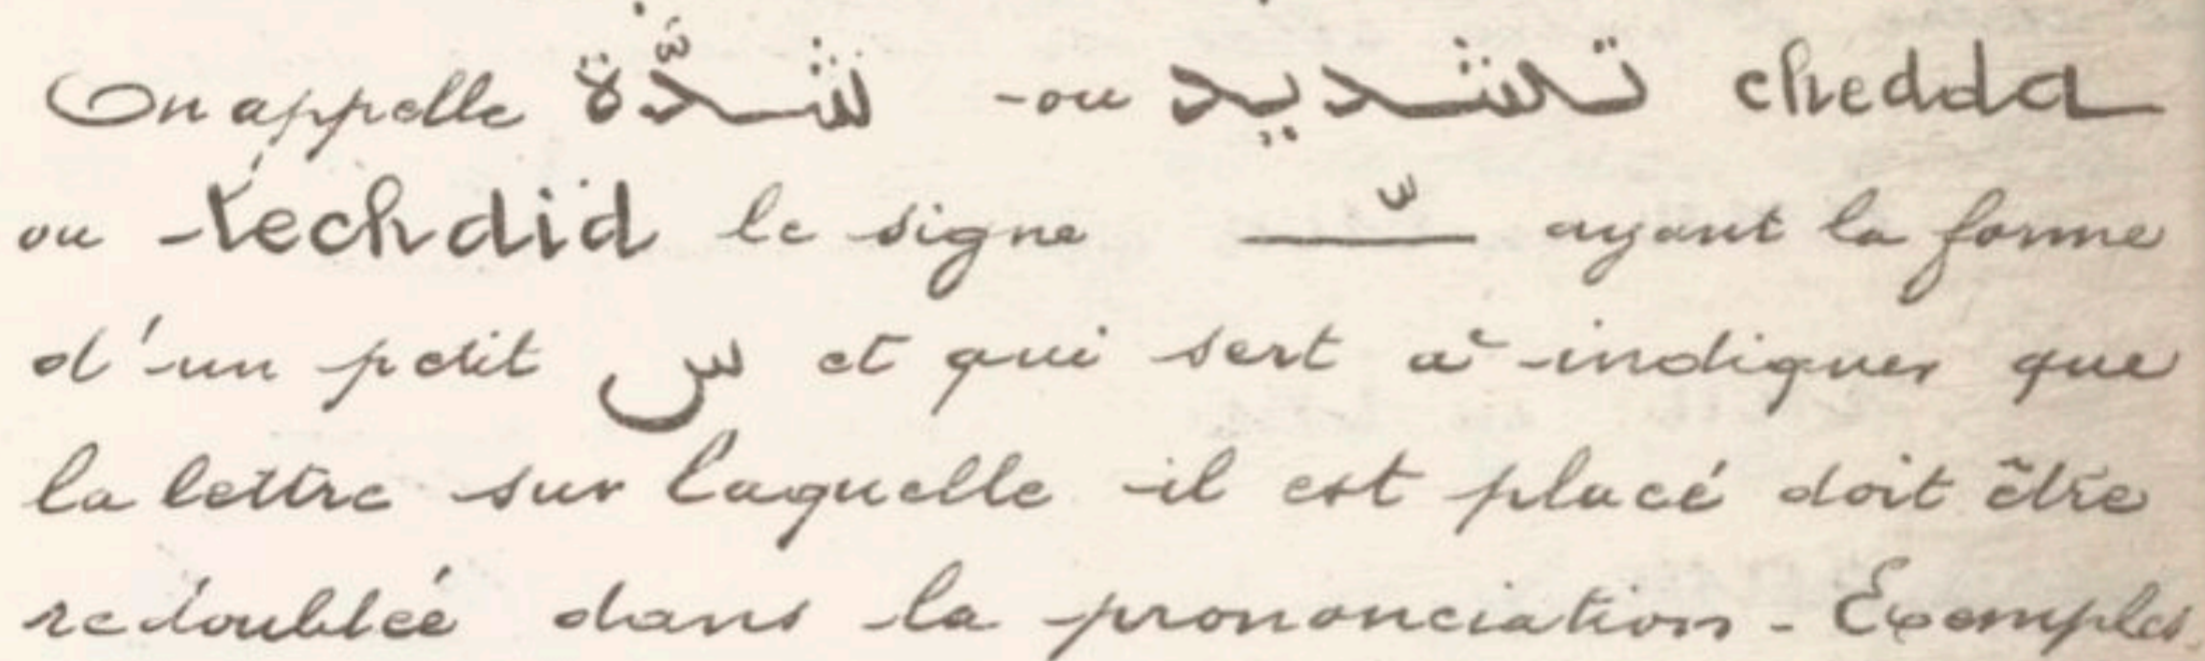 On appelle شدّة ou تشديد chedda
ou techdid le signe ـّـ ayant la forme
d'un petit س et qui sert à indiquer que
la lettre sur laquelle il est placé doit être
redoublée dans la prononciation - Exemples.